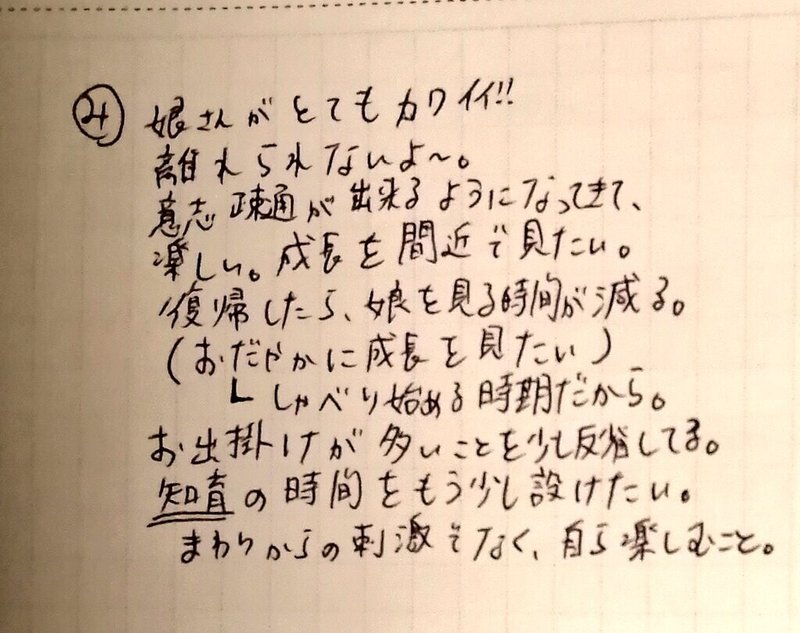 み 娘さんがとてもカワイイ!!
離れられないよ〜。
意志疎通が出来るようになってきて、
楽しい。成長を間近で見たい。
復帰したら、娘を見る時間が減る。
(おだやかに成長を見たい)
しゃべり始める時期だから。
お出掛けが多いことを少し反省してる。
知育の時間をもう少し設けたい。
まわりからの刺激でなく、自ら楽しむこと。